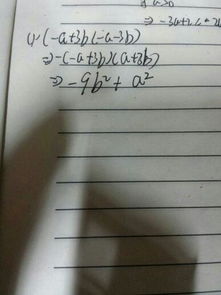 ⇒ -3a+2
(1) (-a+3b(-a-3b)
⇒ -(-a+3b)(a+3b)
⇒ -9b²+a²